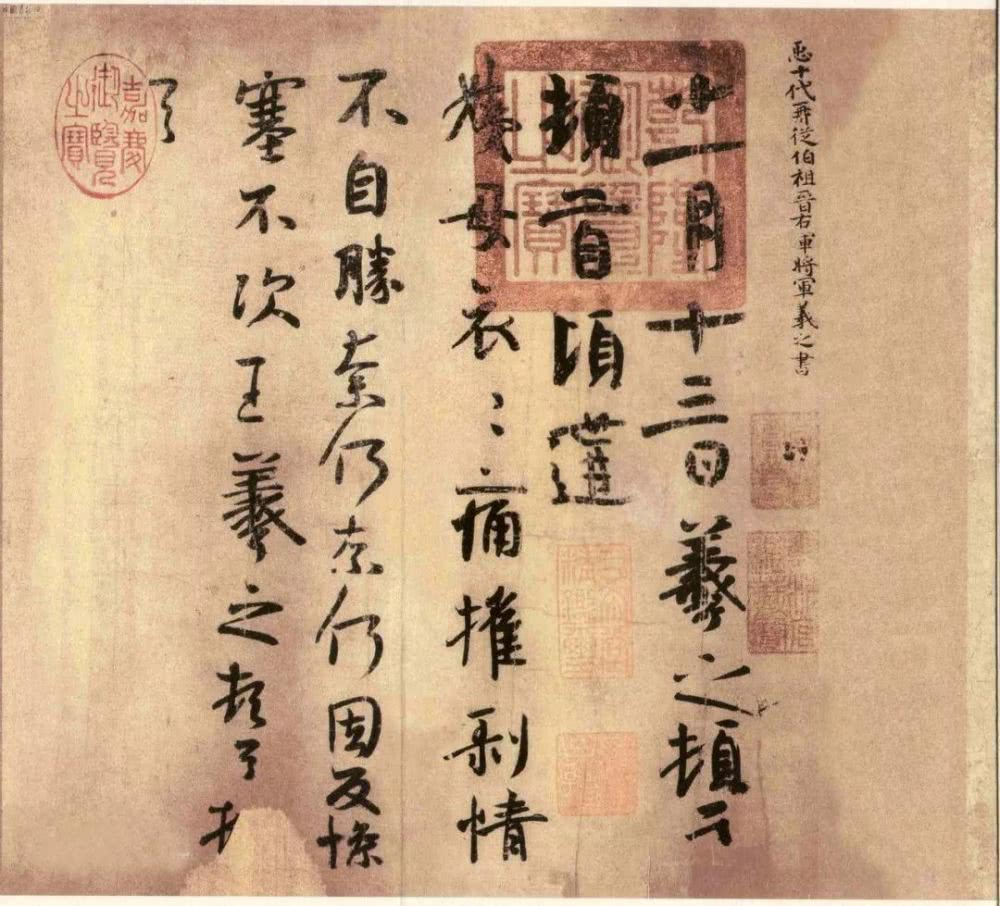 𢘑十代再從伯祖晉右軍將軍羲之書
十一月十三日羲之頓首
頓首頃遘
姨母哀〻痛摧剝情
不自勝奈何奈何因反慘
塞不次王羲之頓首頓
首
乾隆御覽之寶
嘉慶御覽之寶